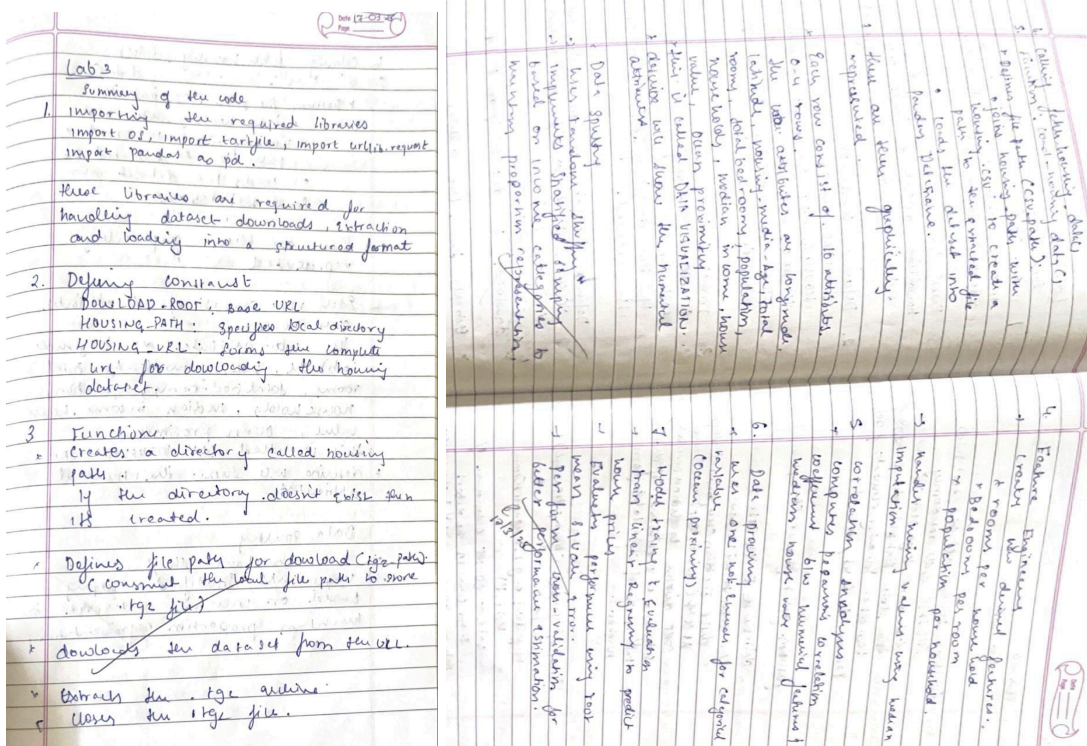 Date 17-03-25
Page
Lab 3
Summary of the code
1. Importing the required libraries
import OS, import tarfile, import urllib.request
import pandas as pd.
these libraries are required for
handling dataset downloads, Extraction
and loading into a structured format
2. Defining constant
DOWLOAD-ROOT: Base URL
HOUSING_PATH: Specifies local directory
HOUSING_URL: forms the complete
url for dowloading the housing
dataset.
3 Function
Creates a directory called housing
path.
If the directory doesn't exist then
its created.
Defines file path for dowload (tgz-path)
(construct the local file path to store
.tgz file)
dowloads the dataset from the URL.
Extracts the .tgz archive.
Closes the .tgz file.
4. Calling fetch-housing-data()
5. function: load-housing-data()
Defines file path (csv-path):
Joins housing-path with
housing.csv to create a
path to the extracted file
loads the dataset into
Pandas DataFrame.
these are then graphically
represented
Each row consist of 10 attributes.
the attributes are longitude,
latitude, housing-media-Age, total
room, total bedrooms, population,
households, median income, house
value, ocean proximity
this is called DATA VISUALIZATION.
describe will show the numerical
attributes.
Data Splitting
Uses random shuffling
Implements Stratified sampling
based on income categories to
housing proportion representation
Date
Page
4. Feature Engineering
Creates new derived features.
rooms per household
Bedrooms per room
population per household.
handles missing values using median
imputation.
5 correlation analysis
computes pearsons correlation
coefficient b/w numerical features &
median house value
6. Data processing
uses one hot encoder for categorical
variables
(ocean proximity)
7. Model training & Evaluation
train linear Regression to predict
house prices
Evaluates performance using root
mean square error.
Performs cross-validation for
better performance estimation.
17/3/25